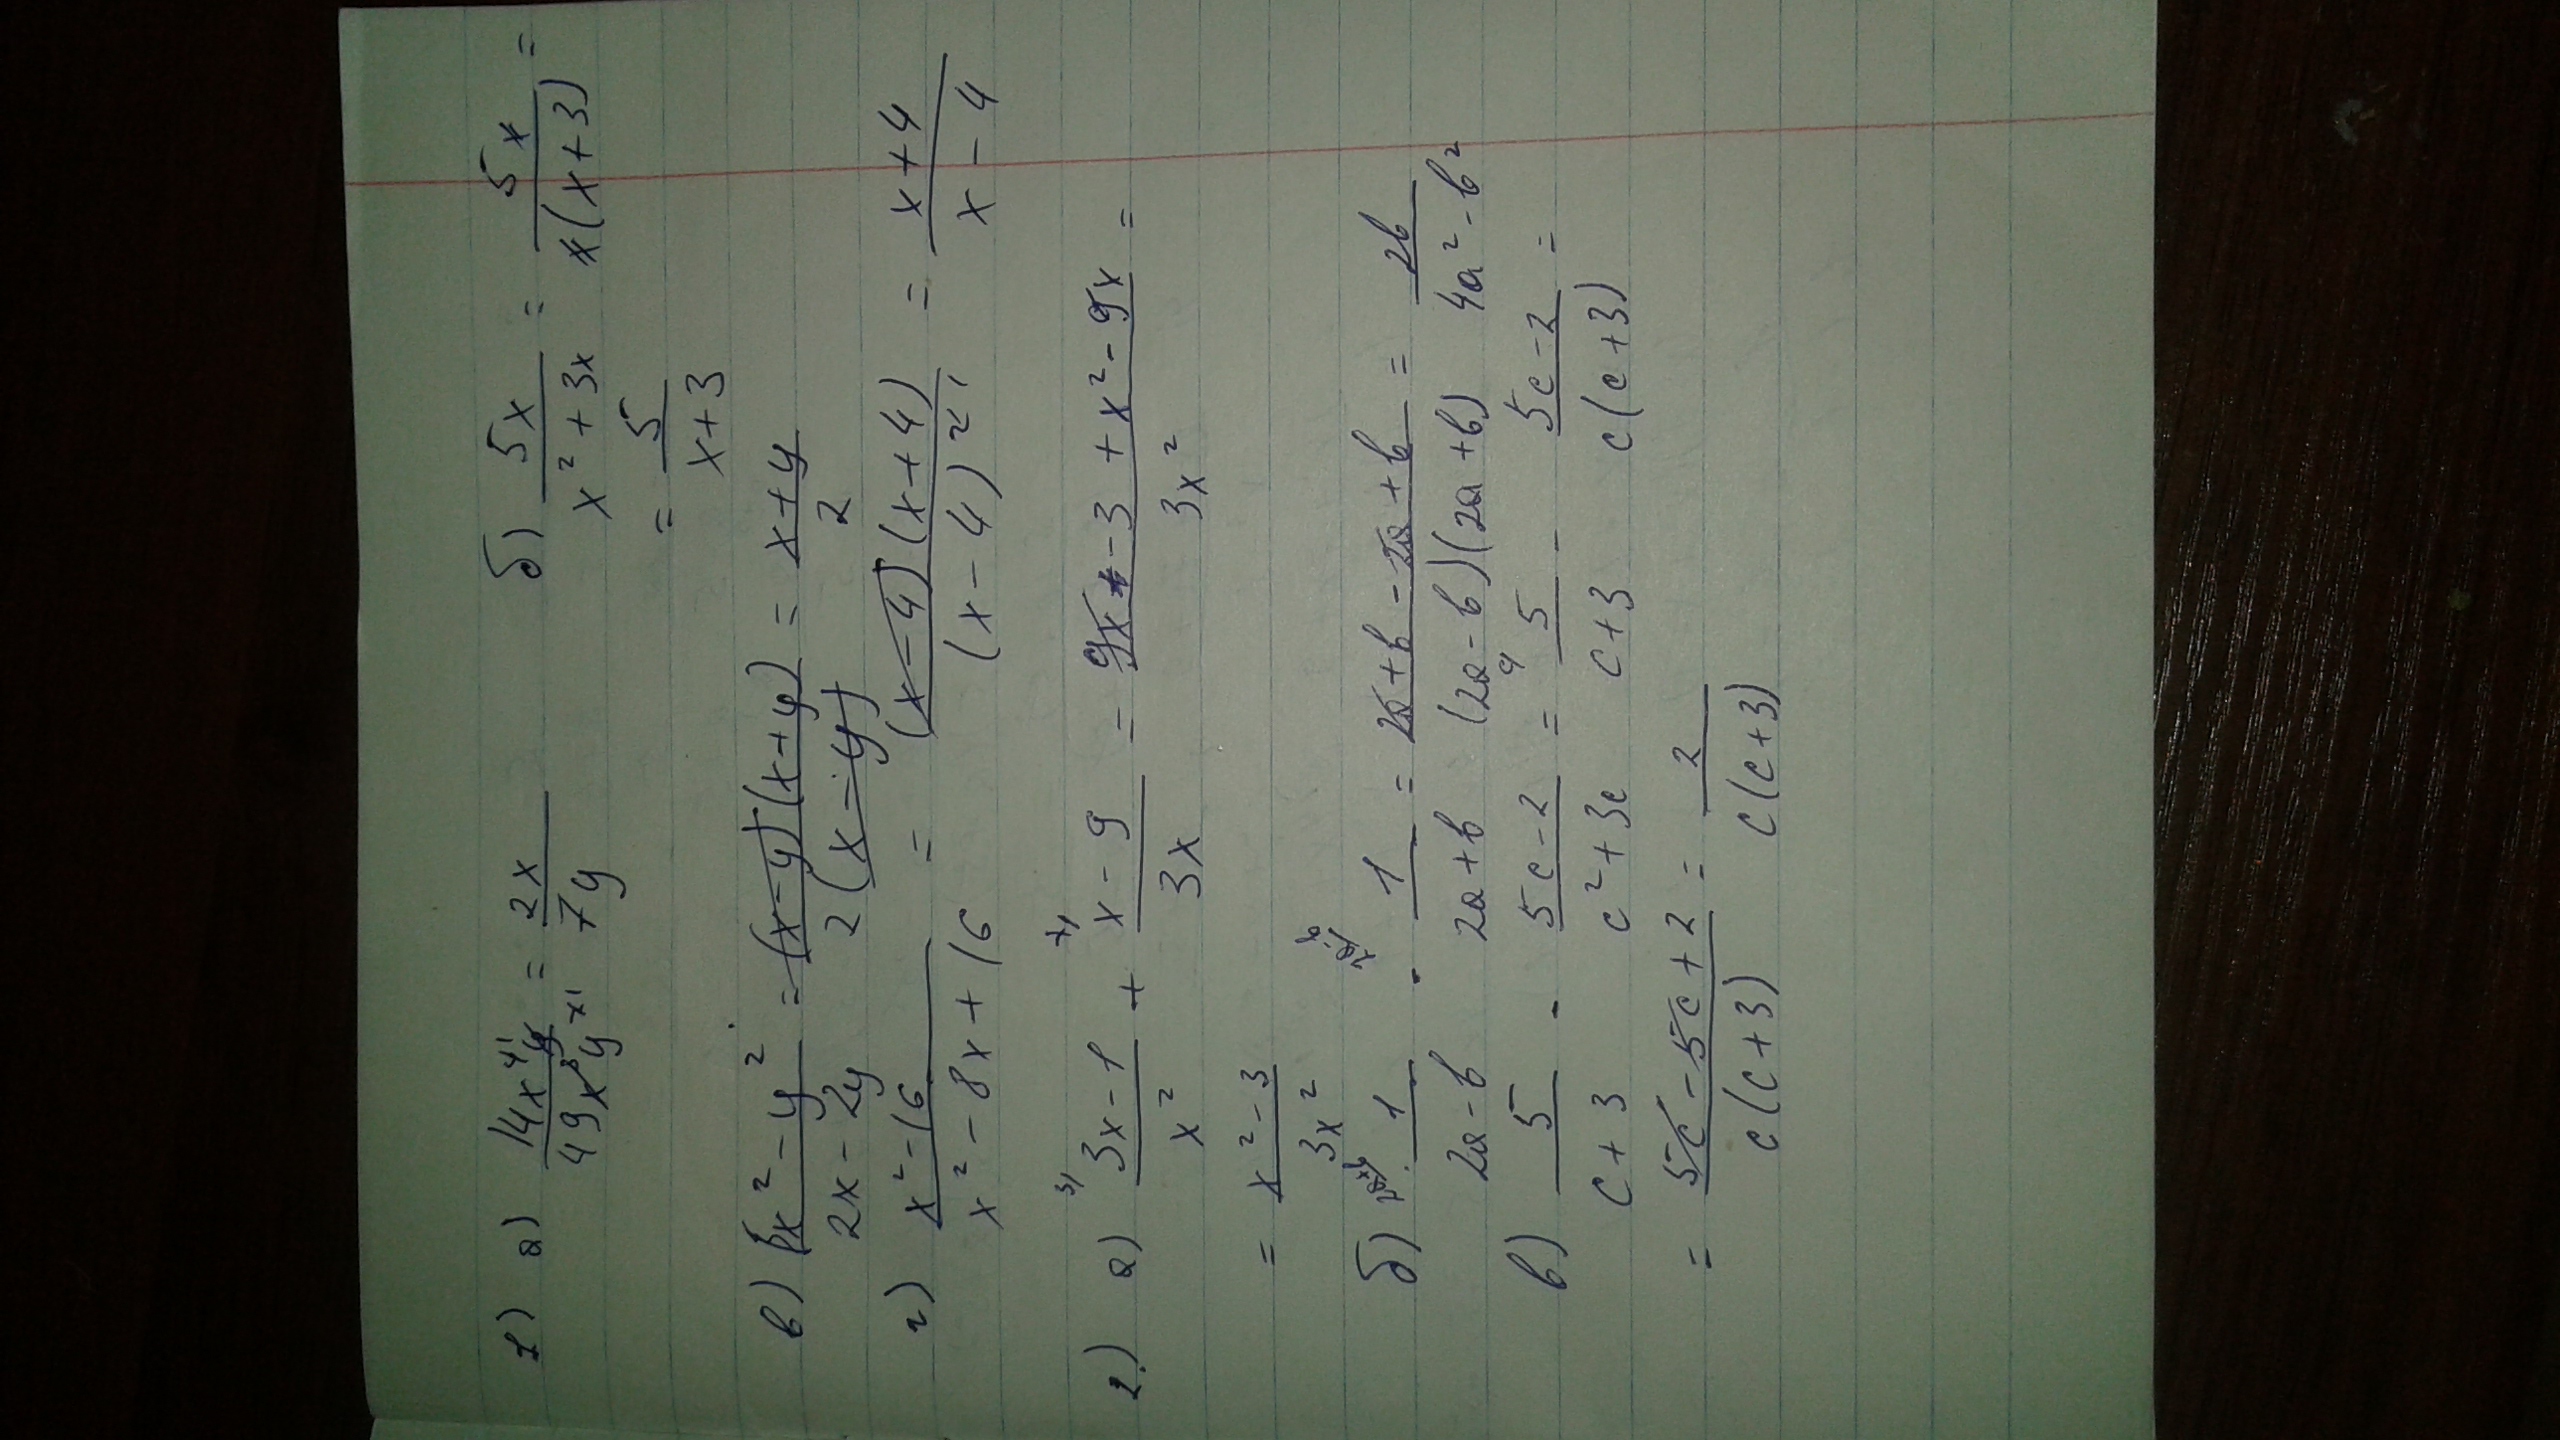 1) а) 14x⁴y / 49x³y² = 2x / 7y   б) 5x / x² + 3x = 5x / x(x+3) =
= 5 / x+3
в) x² - y² / 2x - 2y = (x-y)(x+y) / 2(x-y) = x+y / 2
г) x² - 16 / x² - 8x + 16 = (x-4)(x+4) / (x-4)² = x+4 / x-4
2.) а) 3x-1 / x² + x-9 / 3x = 9x-3+x²-9x / 3x² =
= x²-3 / 3x²
б) 1 / 2a-b - 1 / 2a+b = 2a+b-2a+b / (2a-b)(2a+b) = 2b / 4a²-b²
в) 5 / c+3 - 5c-2 / c²+3c = 5 / c+3 - 5c-2 / c(c+3) =
= 5c-5c+2 / c(c+3) = 2 / c(c+3)